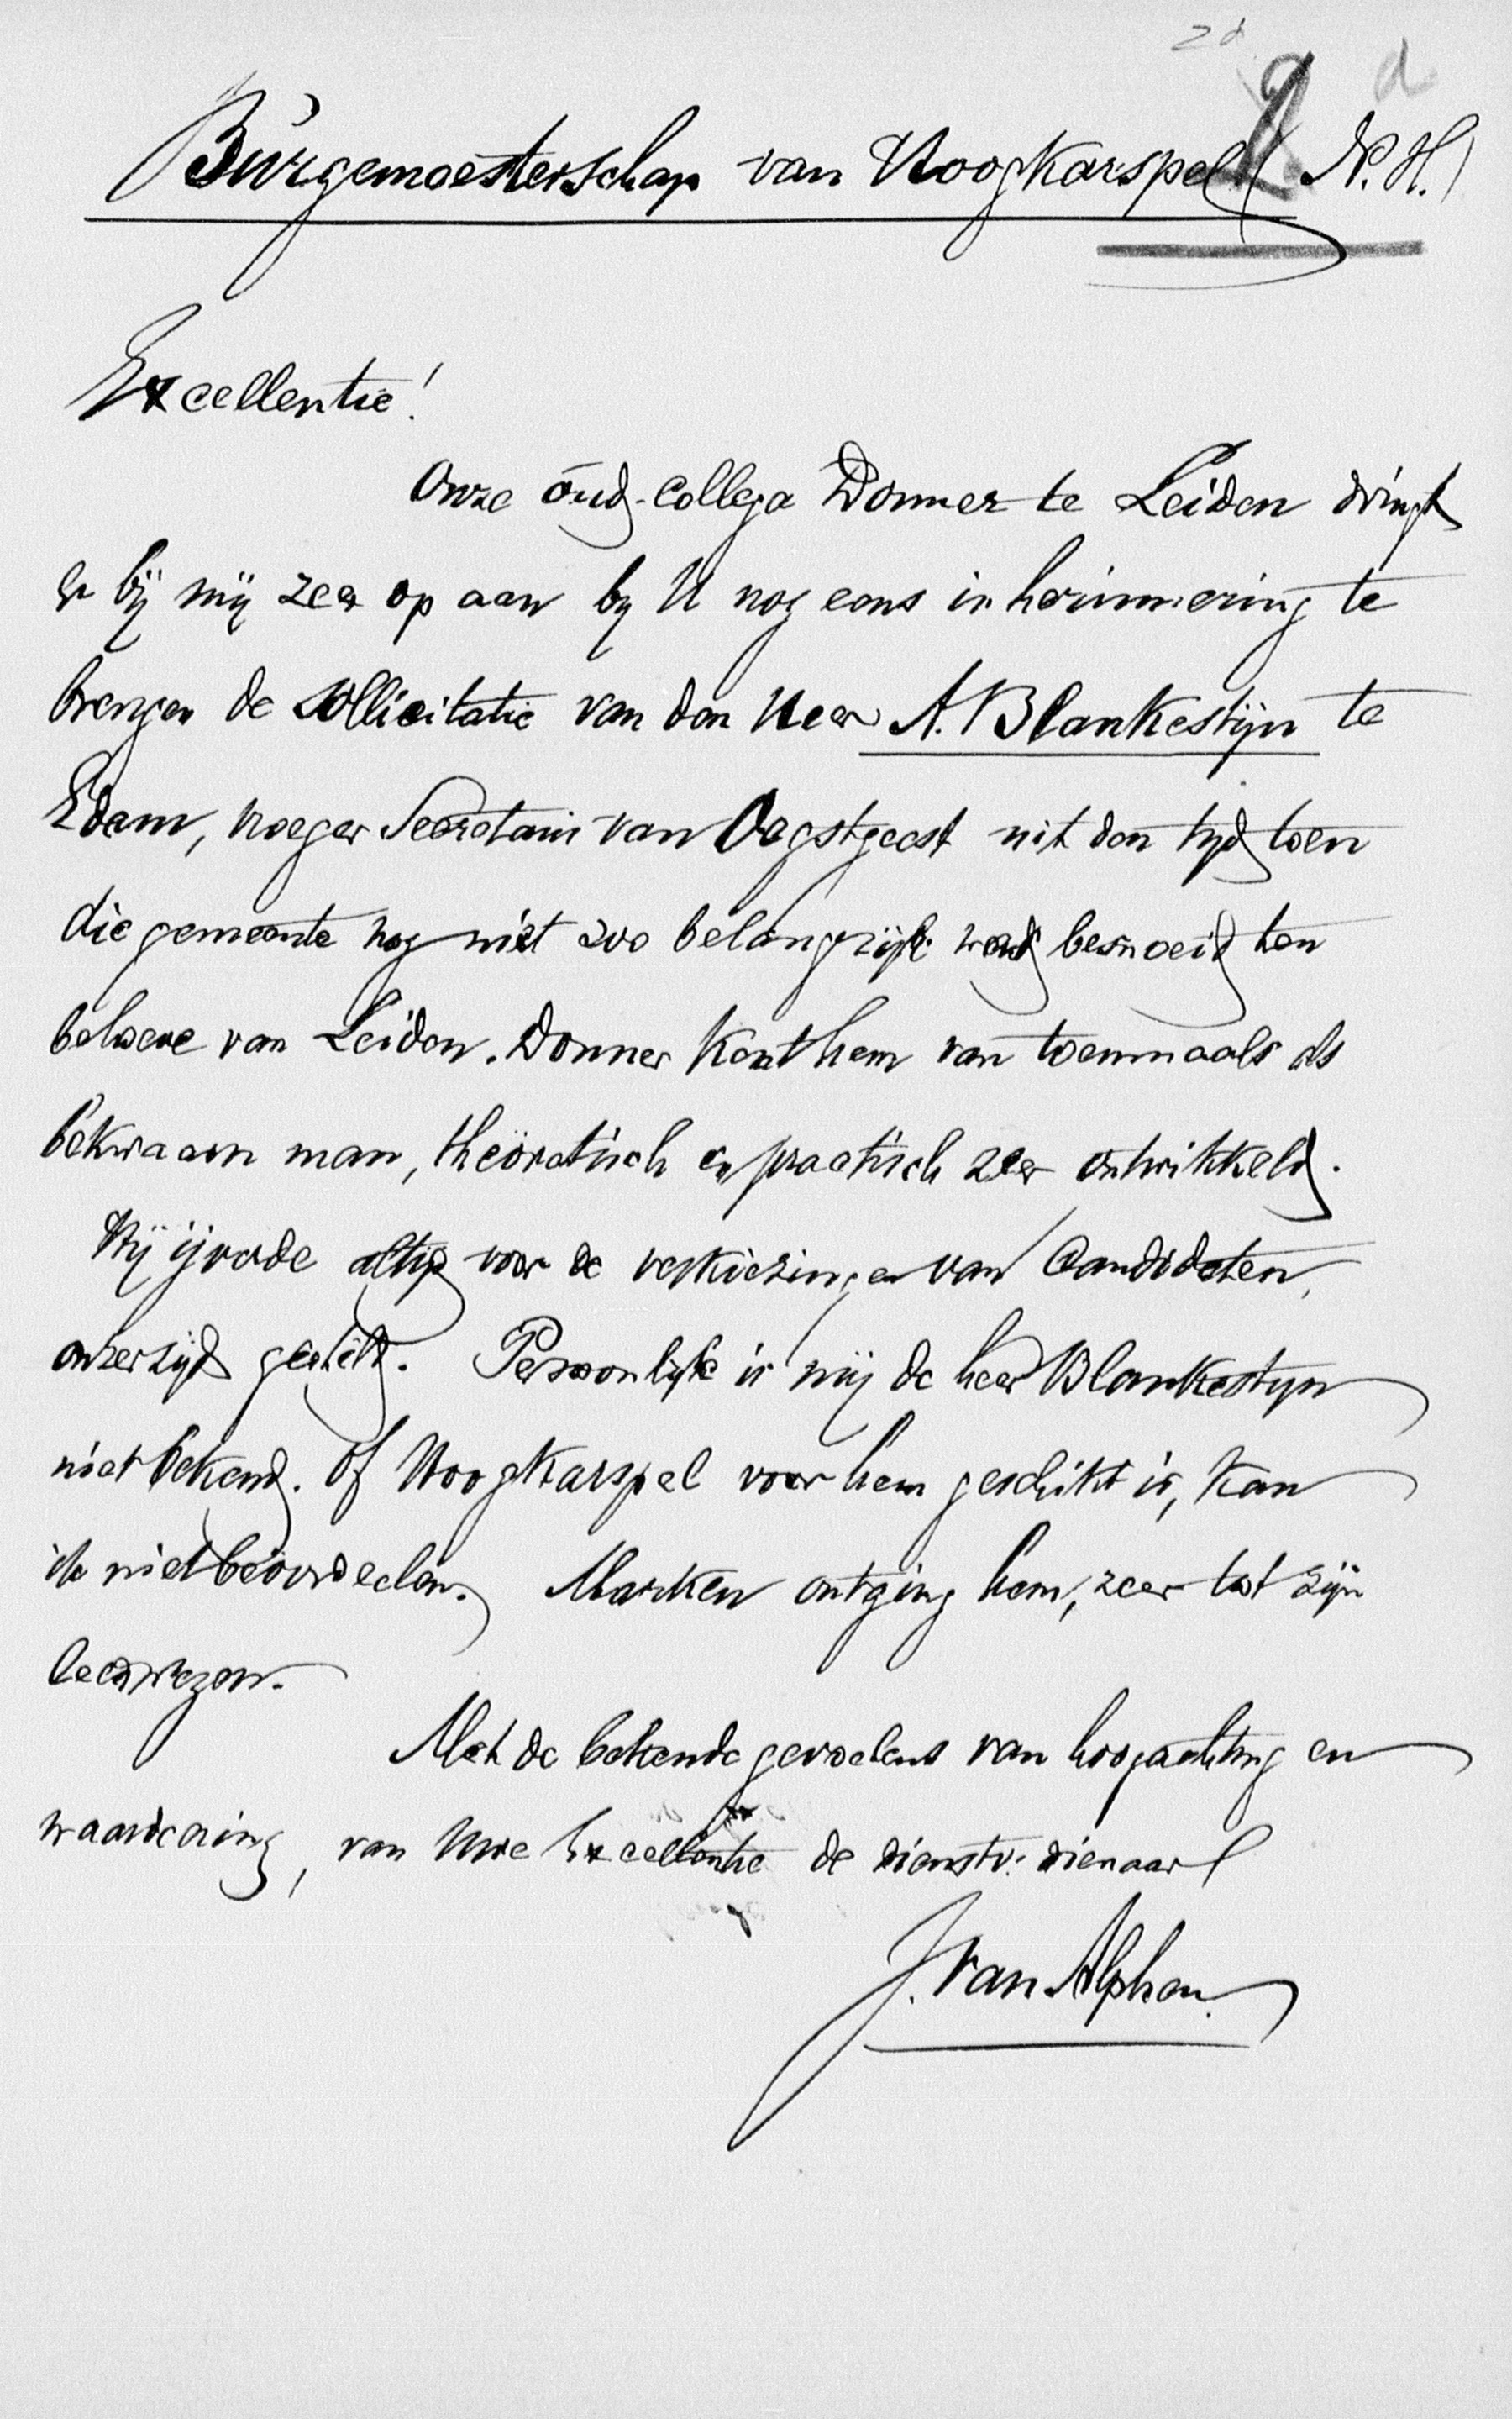 Burgemeesterschap van Hoogkarspel (N.H.)
Excellentie!
Onze oud-collega Donner te Leiden dringt
er bij mij zeer op aan by U nog eens in herinnering te
brengen de sollicitatie van den Heer A. Blankestijn te
Edam, vroeger Secretaris van Oegstgeest uit den tyd toen
die gemeente nog niet zoo belangrijk werd besnoeid ten
behoeve van Leiden. Donner kent hem van toenmaals als
bekwaam man, theoretisch en practisch zeer ontwikkeld.
Hij ijverde altijd voor de verkiezingen van Candidaten,
onzerzijds gesteld. Persoonlijk is mij de heer Blankestyn
niet bekend. Of Hoogkarspel voor hem geschikt is, kan
ik niet beoordeelen. Marken ontging hem, zeer tot zijn
leedwezen.
Met de bekende gevoelens van hoogachting en
waardeering, van Uwe Excellentie de dienstv. dienaar
J. van Alphen.